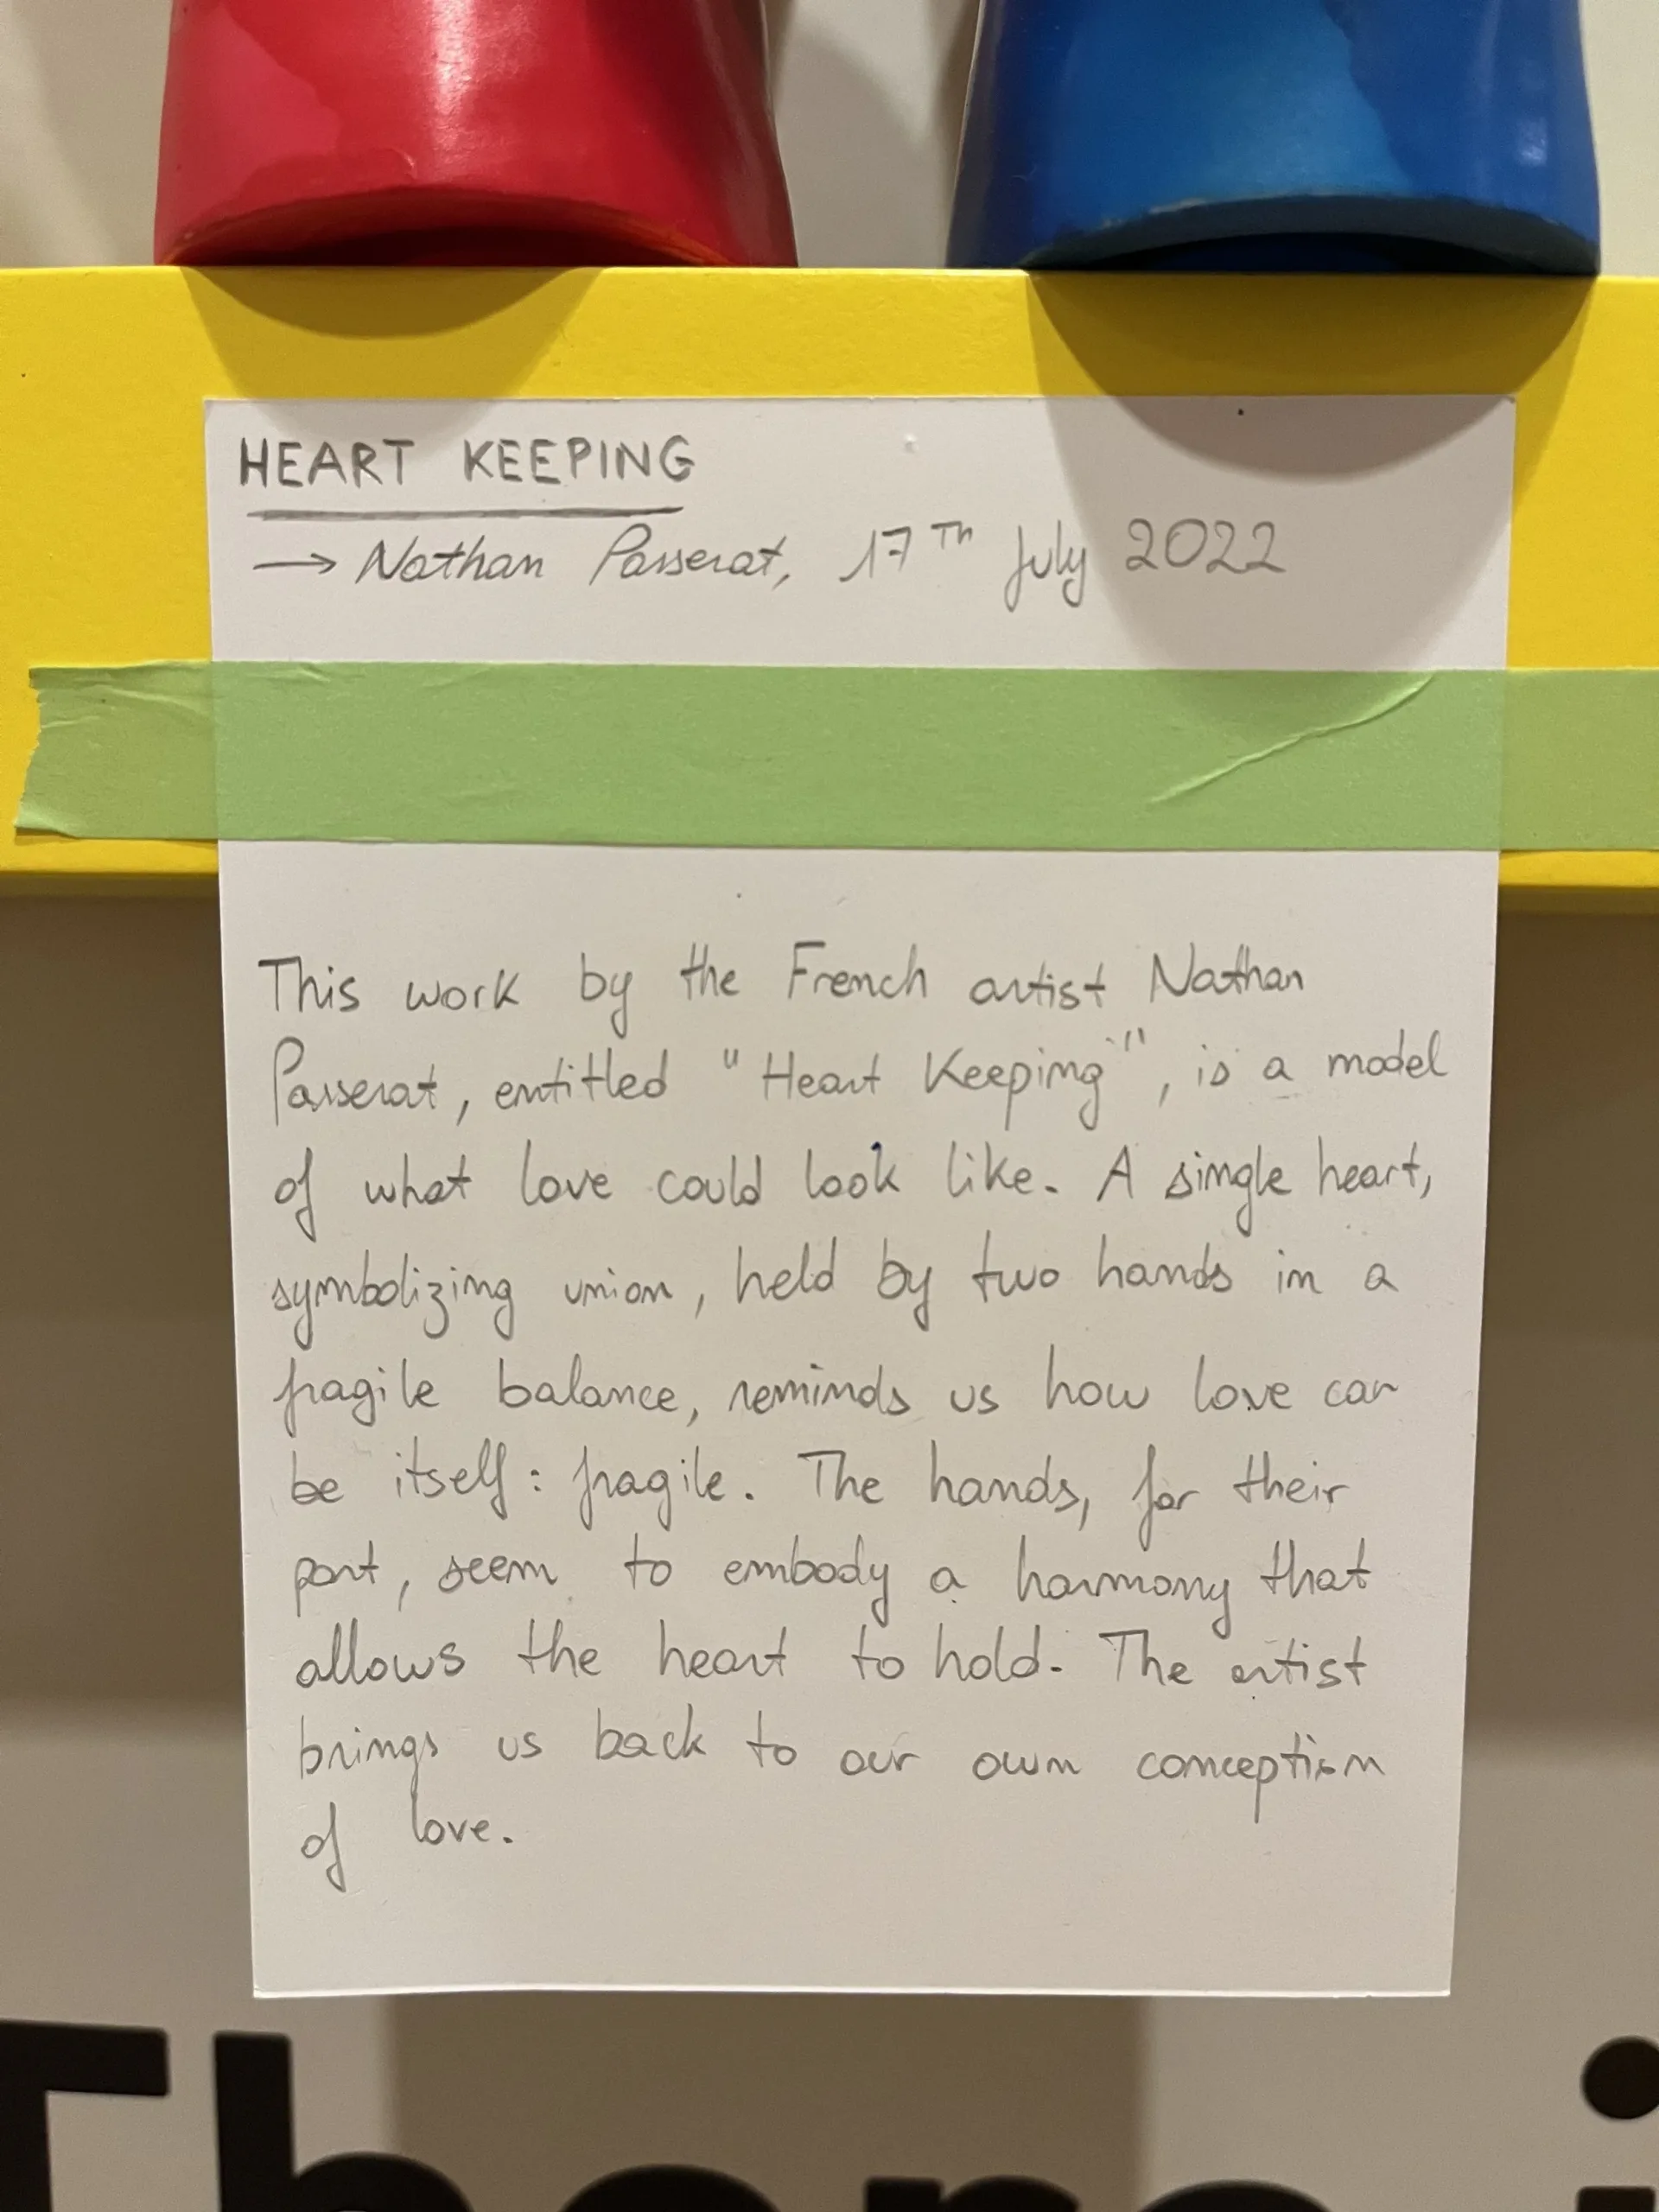 HEART KEEPING
→ Nathan Passerat, 17TH July 2022
This work by the French artist Nathan
Passerat, entitled "Heart Keeping", is a model
of what love could look like. A single heart,
symbolizing union, held by two hands in a
fragile balance, reminds us how love can
be itself: fragile. The hands, for their
part, seem to embody a harmony that
allows the heart to hold. The artist
brings us back to our own conception
of love.